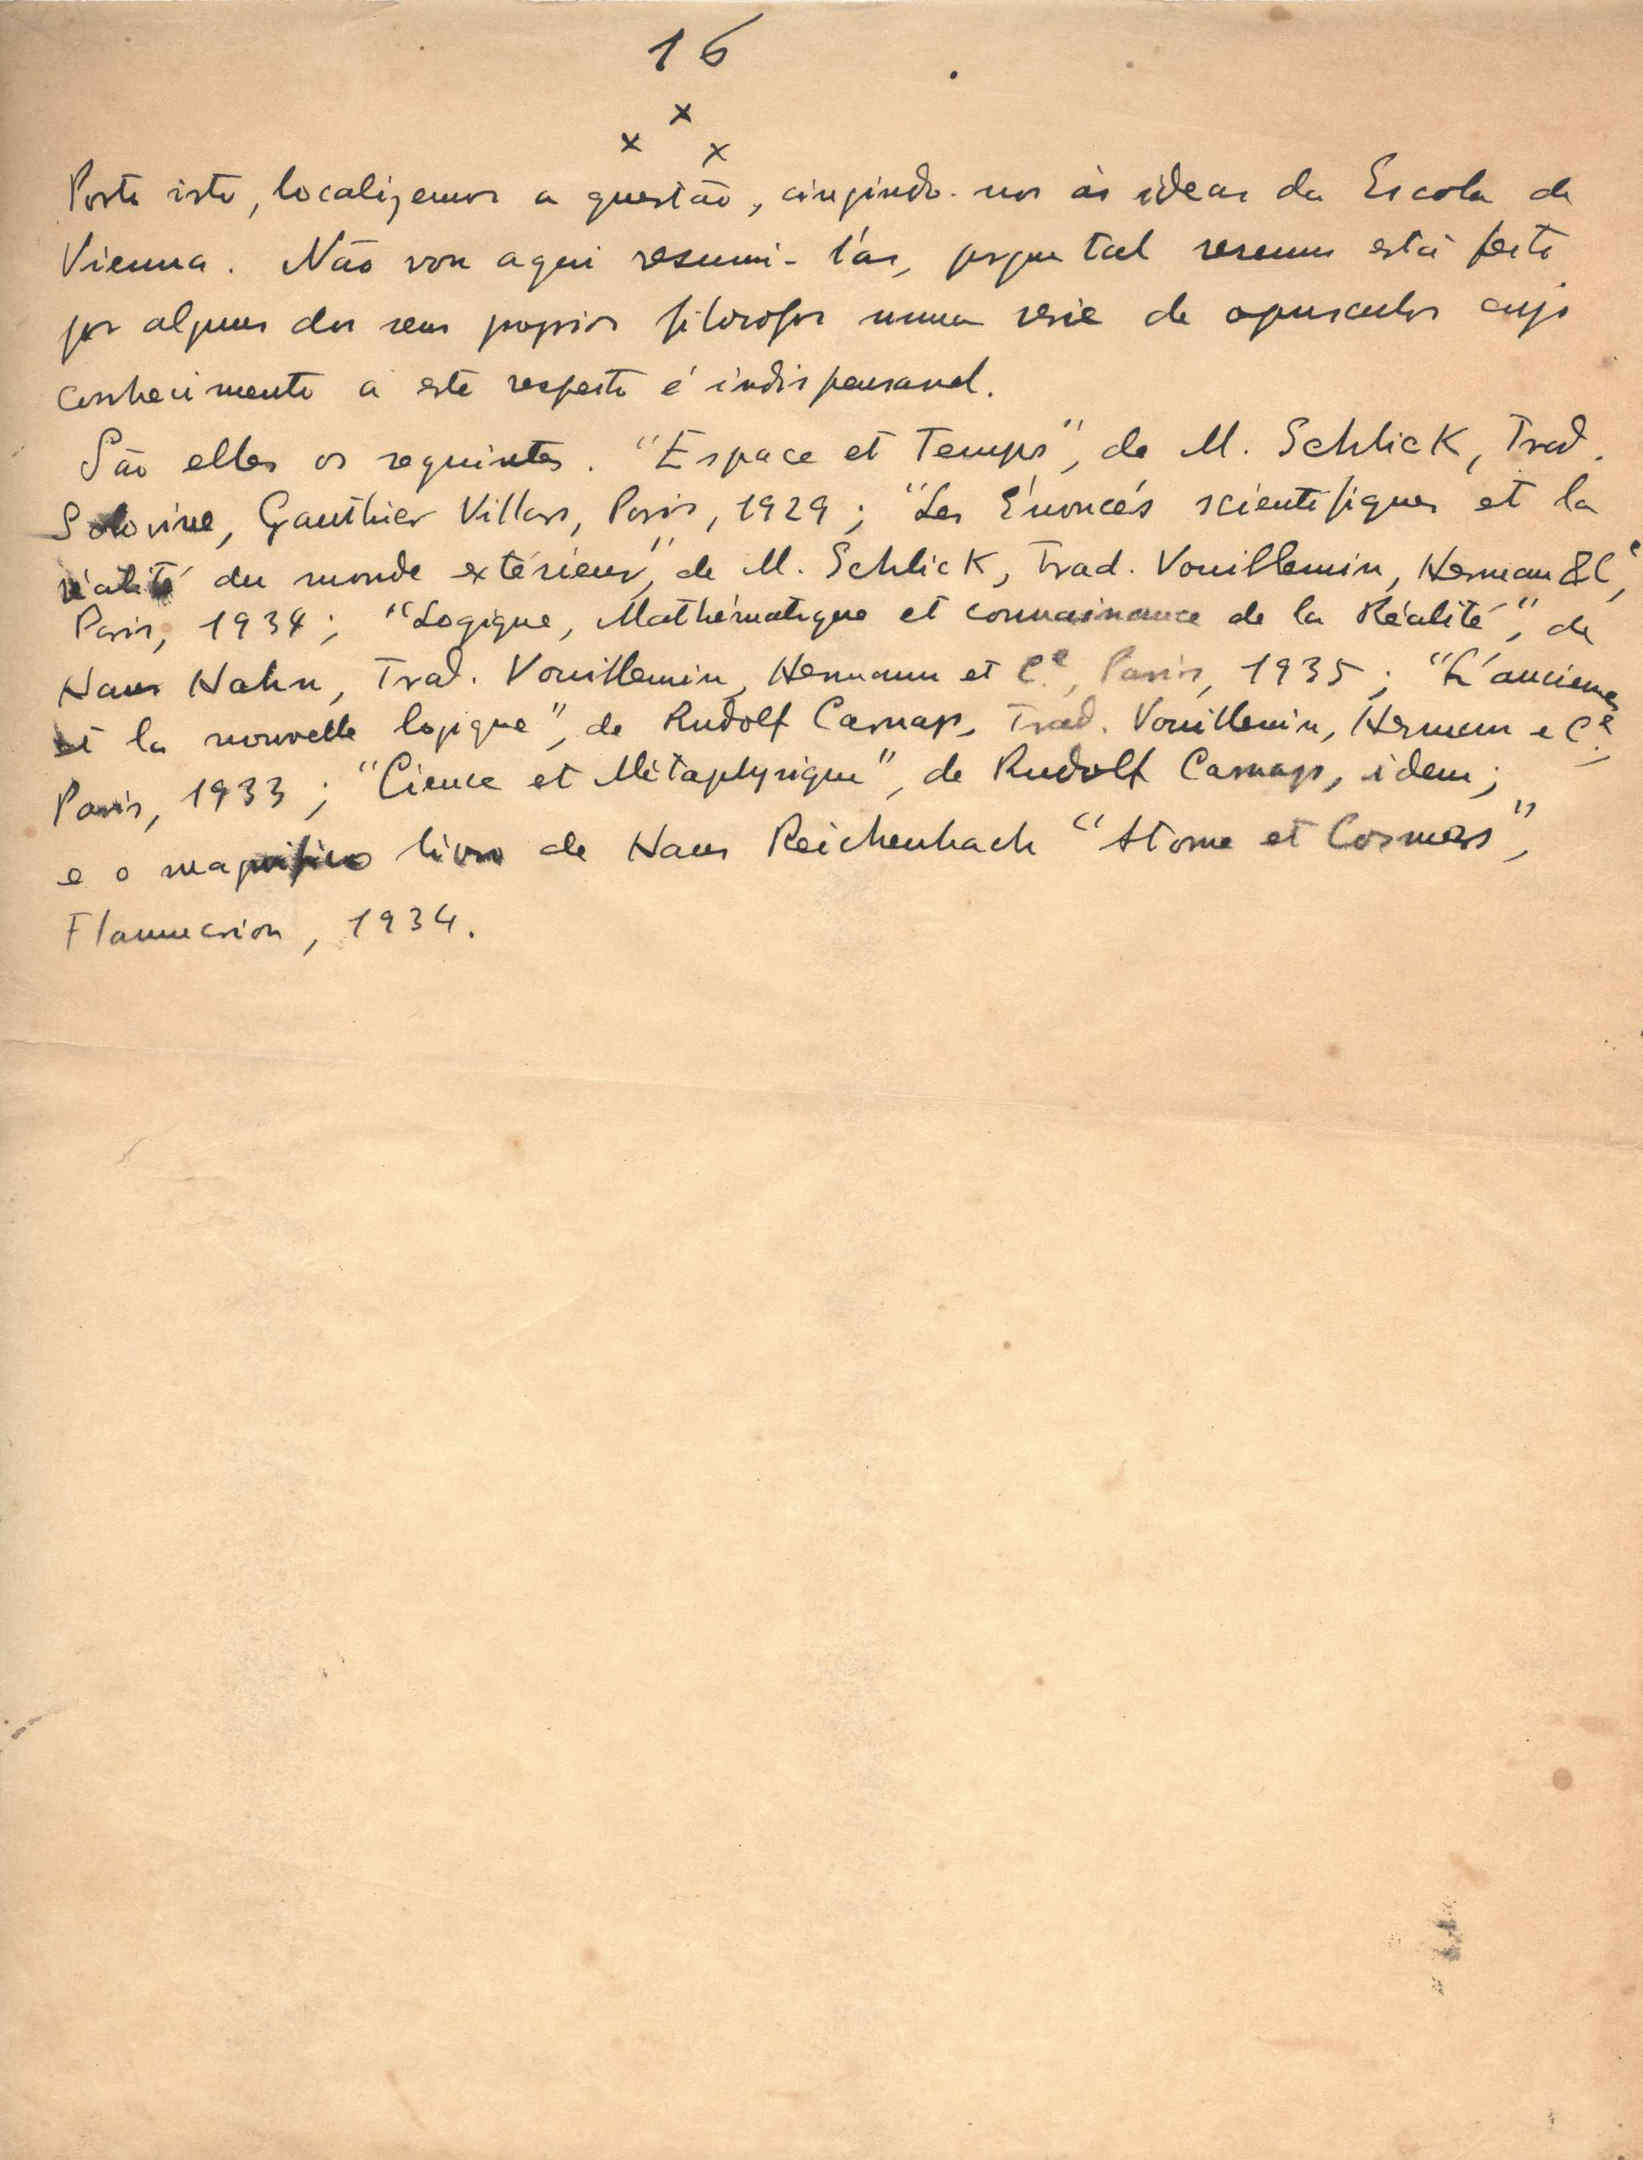 16
x
x x
Posto isto, localizemos a questão, cingindo-nos às ideas da Escola de
Vienna. Não vou aqui resumi-l'as, porque tal resumo está feito
por alguns dos seus proprios filosofos numa serie de opusculos cujo
conhecimento a este respeito é indispensavel.
São elles os seguintes. "Espace et Temps", de M. Schlick, Trad.
Solovine, Gauthier Villars, Paris, 1929; "Les Énoncés scientifiques et la
réalité du monde extérieur", de M. Schlick, Trad. Vouillemin, Herman & Cª,
Paris, 1934; "Logique, Mathématique et connaissance de la Réalité", de
Hans Hahn, Trad. Vouillemin, Hermann et Cª, Paris, 1935; "L'ancienne
et la nouvelle logique", de Rudolf Carnap, Trad. Vouillemin, Hermann e Cª,
Paris, 1933; "Cience et Métaphysique", de Rudolf Carnap, idem;
e o magnifico livro de Hans Reichenbach "Atome et Cosmos",
Flammarion, 1934.